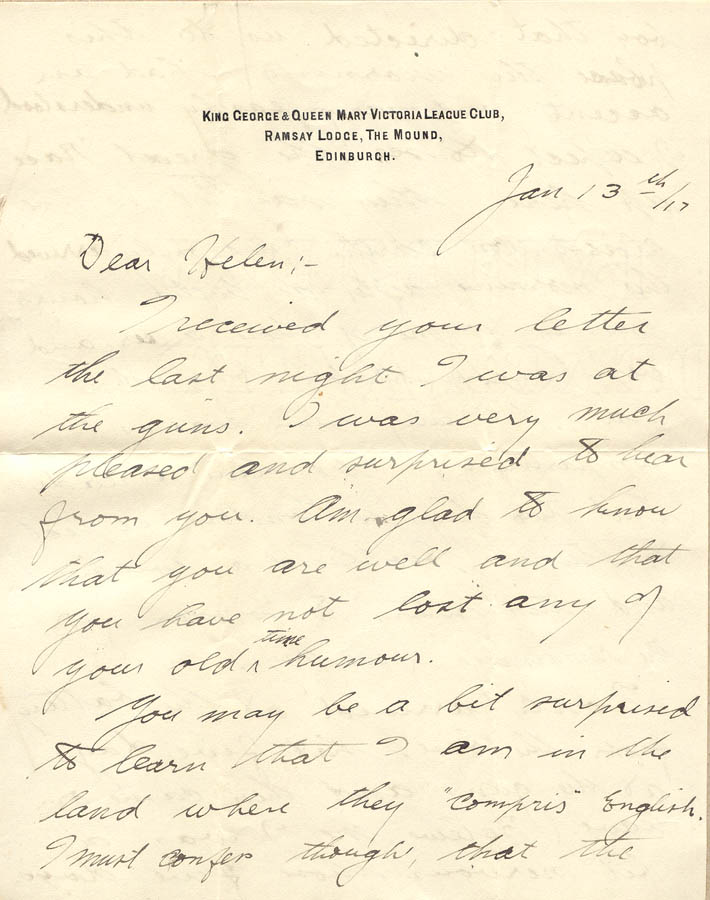 KING GEORGE & QUEEN MARY VICTORIA LEAGUE CLUB,
RAMSAY LODGE, THE MOUND,
EDINBURGH.
Jan 13th/17
Dear Helen;-
I received your letter
the last night I was at
the guns. I was very much
pleased and surprised to hear
from you. Am glad to know
that you are well and that
you have not lost any of
your old time humour.
You may be a bit surprised
to learn that I am in the
land where they "compris" English.
I must confess though, that the